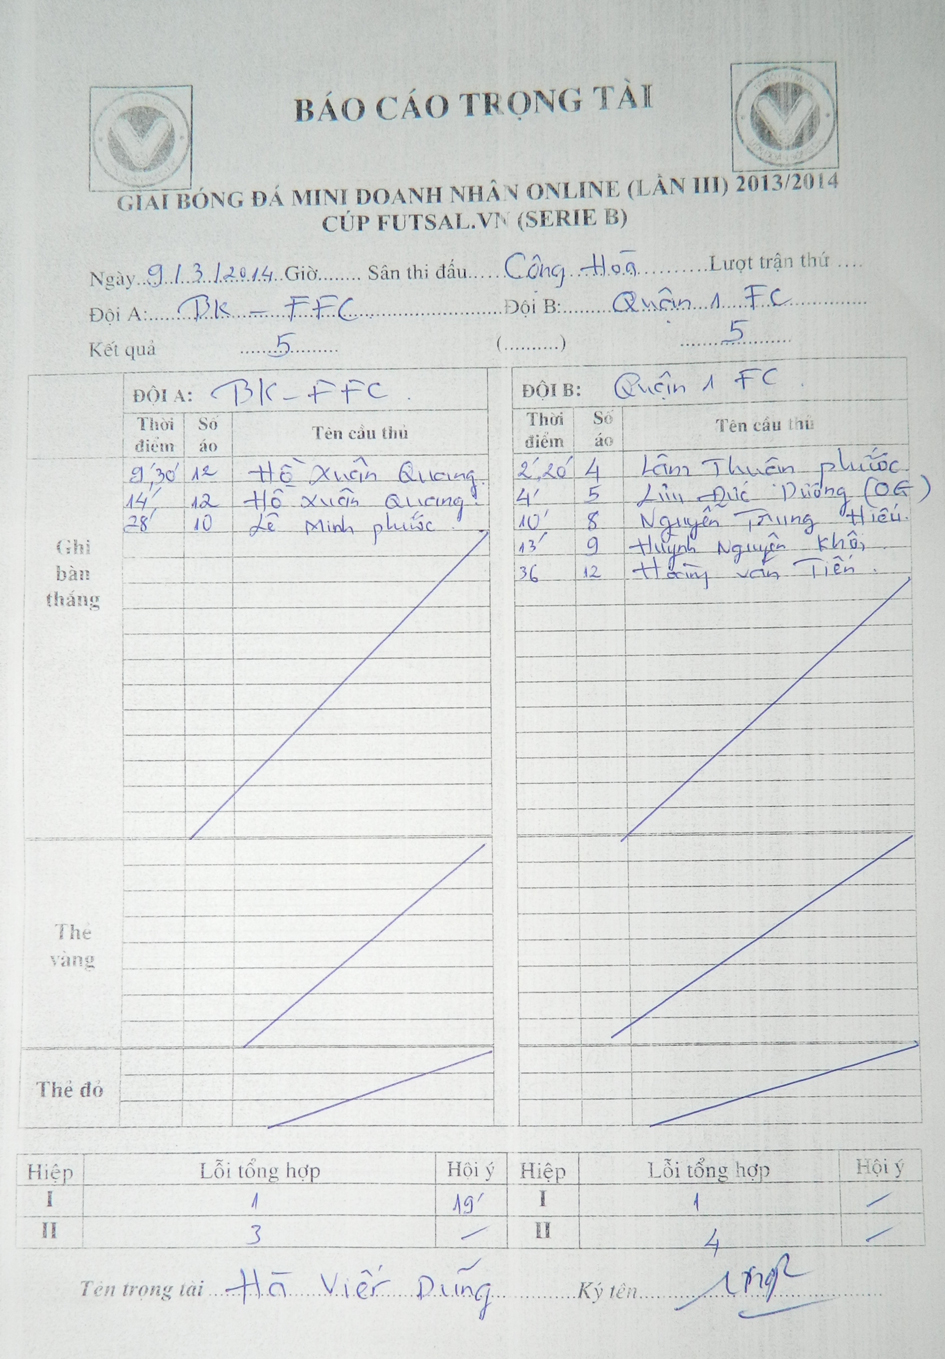 BÁO CÁO TRỌNG TÀI
GIẢI BÓNG ĐÁ MINI DOANH NHÂN ONLINE (LẦN III) 2013/2014
CÚP FUTSAL.VN (SERIE B)
Ngày 9/3/2014 Giờ........ Sân thi đấu..... Cộng Hoà ........... Lượt trận thứ ....
Đội A:..... BK - FFC ..... Đội B:..... Quận 1 FC .....
Kết quả 5 (..........) 5
ĐỘI A: BK - FFC. ĐỘI B: Quận 1 FC.
Thời điểm Số áo Tên cầu thủ Thời điểm Số áo Tên cầu thủ
9',30' 12 Hồ Xuân Quang. 2',20' 4 Lâm Thuân Phước
14' 12 Hồ Xuân Quang. 4' 5 Lưu Đức Dương (OG)
28' 10 Lê Minh Phước. 10' 8 Nguyễn Trung Hiếu.
13' 9 Huỳnh Nguyên Khôi
36 12 Hoàng Văn Tiến.
Ghi
bàn
thắng
Thẻ
vàng
Thẻ đỏ
Hiệp Lỗi tổng hợp Hội ý Hiệp Lỗi tổng hợp Hội ý
I 1 19' I 1 /
II 3 / II 4 /
Tên trọng tài .... Hà Viết Dũng .... Ký tên